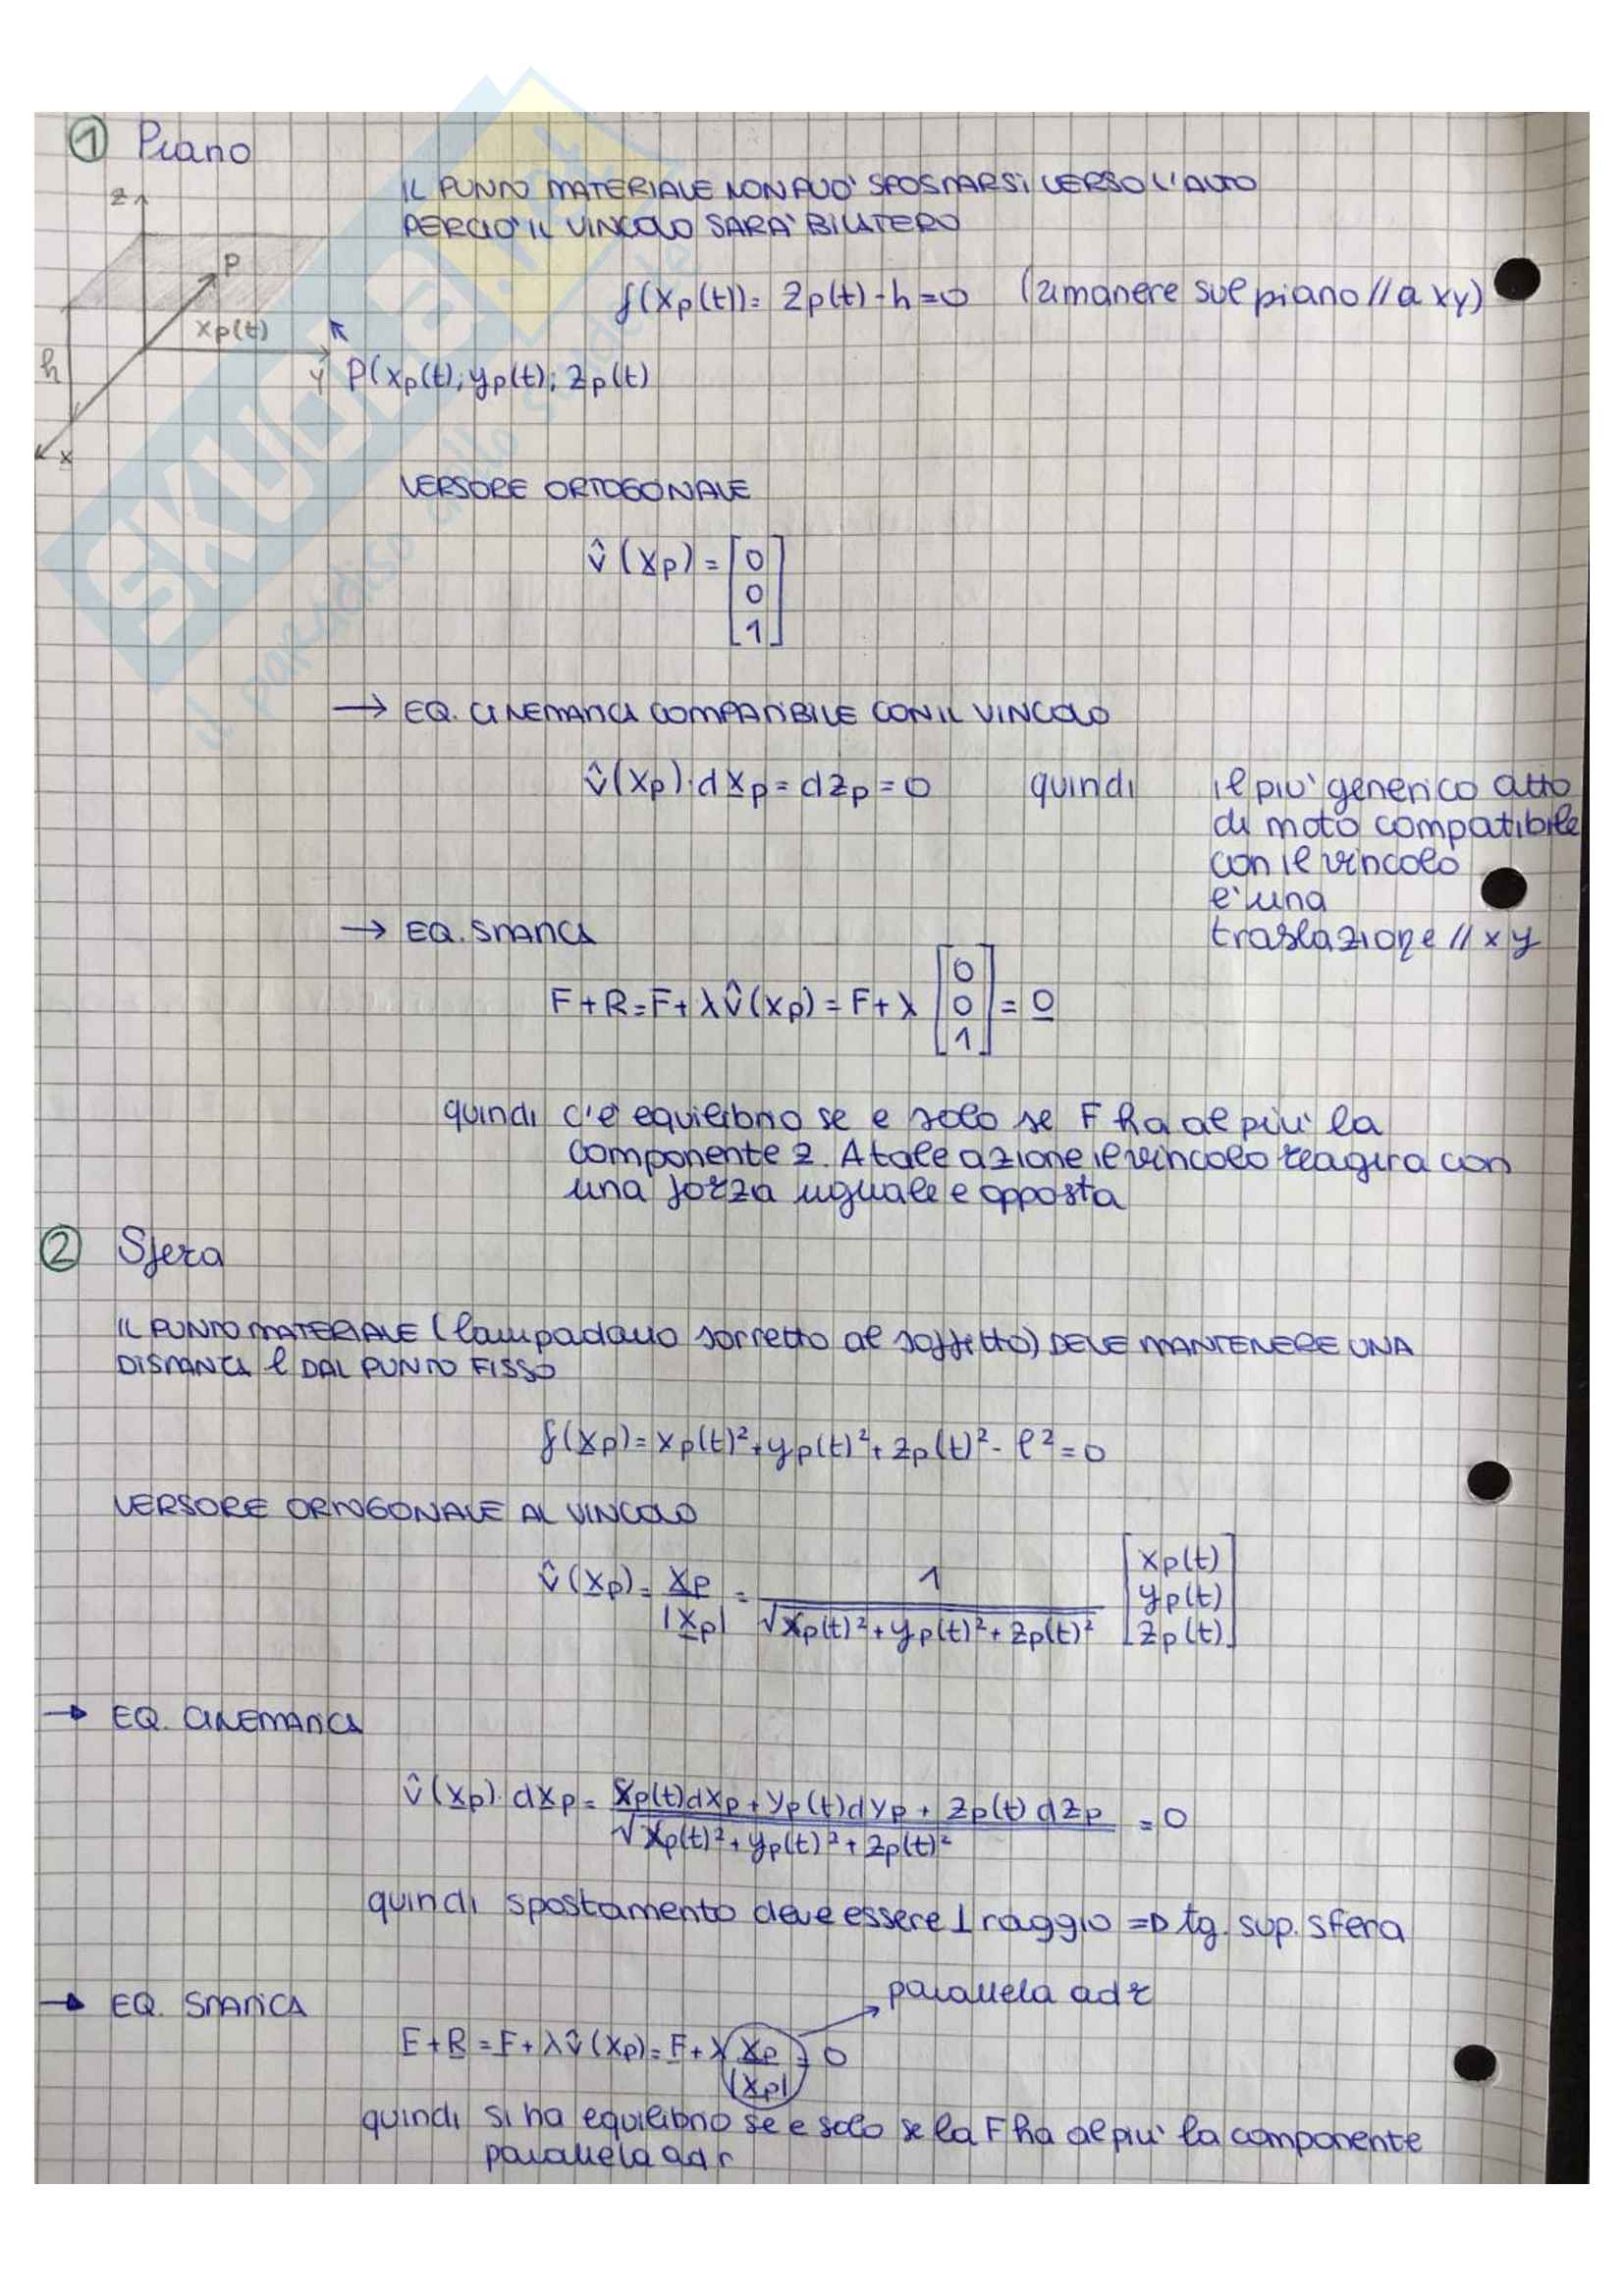 ① Piano
IL PUNTO MATERIALE NON PUO' SPOSTARSI VERSO L'ALTO
PERCIO' IL VINCOLO SARA' BILATERO
z
P
xp(t)
h
y
x
f(xp(t)) = zp(t) - h = 0 (rimanere sul piano // a xy)
P(xp(t); yp(t); zp(t)
VERSORE ORTOGONALE
v̂(xp) = [0
0
1]
→ EQ. CINEMATICA COMPATIBILE CON IL VINCOLO
v̂(xp)·dxp = dzp = 0 quindi il piu' generico atto
di moto compatibile
con il vincolo
e' una
traslazione // xy
→ EQ. STATICA
F + R = F + λv̂(xp) = F + λ [0 0 1] = 0
quindi c'e' equilibrio se e solo se F ha al piu' la
componente z. A tale azione il vincolo reagira con
una forza uguale e opposta
② Sfera
IL PUNTO MATERIALE (lampadario sorretto al soffitto) DEVE MANTENERE UNA
DISTANZA l DAL PUNTO FISSO
f(xp) = xp(t)² + yp(t)² + zp(t)² - l² = 0
VERSORE ORTOGONALE AL VINCOLO
v̂(xp) = xp/|xp| = 1/√xp(t)² + yp(t)² + zp(t)² [xp(t) yp(t) zp(t)]
→ EQ. CINEMATICA
v̂(xp)·dxp = xp(t)dxp + yp(t)dyp + zp(t)dzp / √xp(t)² + yp(t)² + zp(t)² = 0
quindi spostamento deve essere ⊥ raggio ⇒ tg. sup. sfera
→ EQ. STATICA
parallela ad r
F + R = F + λv̂(xp) = F + λ xp/|xp| = 0
quindi si ha equilibrio se e solo se la F ha al piu' la componente
parallela ad r
SKUOLA
il paradiso dello studente